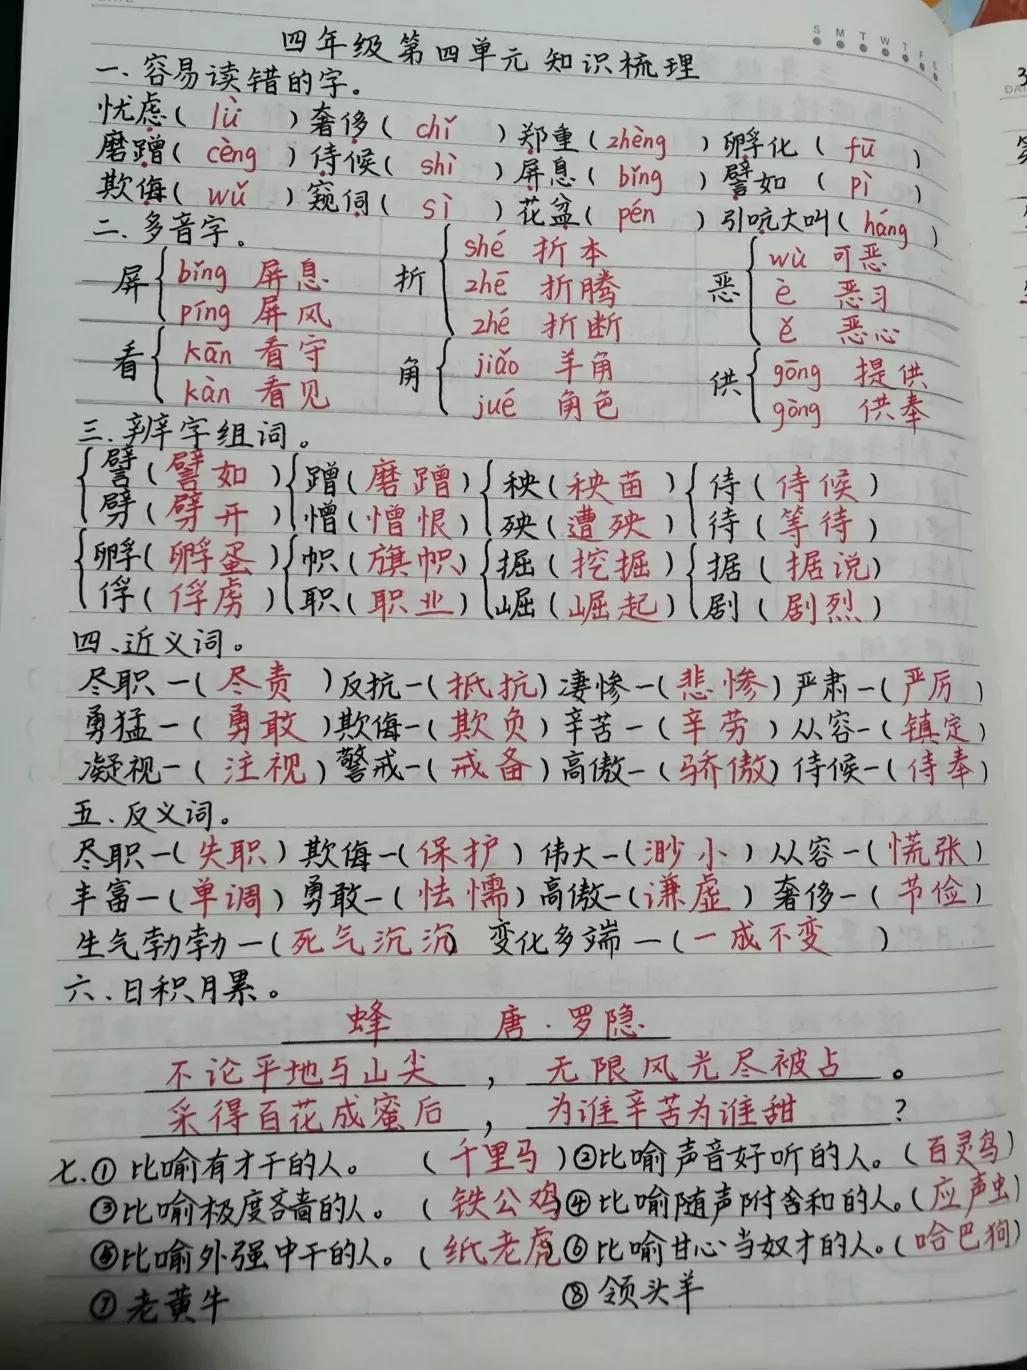 四年级第四单元 知识梳理
一、容易读错的字。
忧虑( lǜ ) 奢侈( chǐ ) 郑重( zhèng ) 孵化( fū )
磨蹭( cèng ) 侍候( shì ) 屏息( bǐng ) 譬如( pì )
欺侮( wǔ ) 窥伺( sì ) 花盆( pén ) 引吭大叫( háng )
二、多音字。
屏 { bǐng 屏息 píng 屏风 折 { shé 折本 zhē 折腾 zhé 折断 恶 { wù 可恶 è 恶习 ě 恶心
看 { kān 看守 kàn 看见 角 { jiǎo 羊角 jué 角色 供 { gōng 提供 gòng 供奉
三、辨字组词。
{ 譬( 譬如 ) { 蹭( 磨蹭 ) { 秧( 秧苗 ) { 侍( 侍候 )
劈( 劈开 ) 憎( 憎恨 ) 殃( 遭殃 ) 待( 等待 )
{ 孵( 孵蛋 ) { 帜( 旗帜 ) { 掘( 挖掘 ) { 据( 据说 )
俘( 俘虏 ) 职( 职业 ) 崛( 崛起 ) 剧( 剧烈 )
四、近义词。
尽职—( 尽责 ) 反抗—( 抵抗 ) 凄惨—( 悲惨 ) 严肃—( 严厉 )
勇猛—( 勇敢 ) 欺侮—( 欺负 ) 辛苦—( 辛劳 ) 从容—( 镇定 )
凝视—( 注视 ) 警戒—( 戒备 ) 高傲—( 骄傲 ) 侍候—( 侍奉 )
五、反义词。
尽职—( 失职 ) 欺侮—( 保护 ) 伟大—( 渺小 ) 从容—( 慌张 )
丰富—( 单调 ) 勇敢—( 怯懦 ) 高傲—( 谦虚 ) 奢侈—( 节俭 )
生气勃勃—( 死气沉沉 ) 变化多端—( 一成不变 )
六、日积月累。
蜂 唐·罗隐
不论平地与山尖, 无限风光尽被占。
采得百花成蜜后, 为谁辛苦为谁甜?
七、①比喻有才干的人。( 千里马 ) ②比喻声音好听的人。( 百灵鸟 )
③比喻极度吝啬的人。( 铁公鸡 ④比喻随声附含和的人。( 应声虫 )
⑤比喻外强中干的人。( 纸老虎 ⑥比喻甘心当奴才的人。( 哈巴狗 )
⑦老黄牛 ⑧领头羊